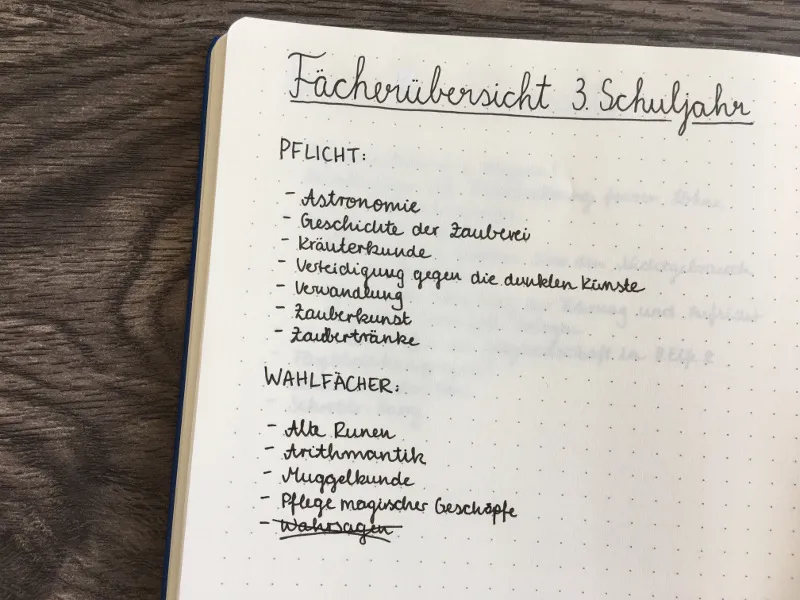 Fächerübersicht 3. Schuljahr
PFLICHT:
- Astronomie
- Geschichte der Zauberei
- Kräuterkunde
- Verteidigung gegen die dunklen Künste
- Verwandlung
- Zauberkunst
- Zaubertränke
WAHLFÄCHER:
- Alte Runen
- Arithmantik
- Muggelkunde
- Pflege magischer Geschöpfe
- Wahrsagen